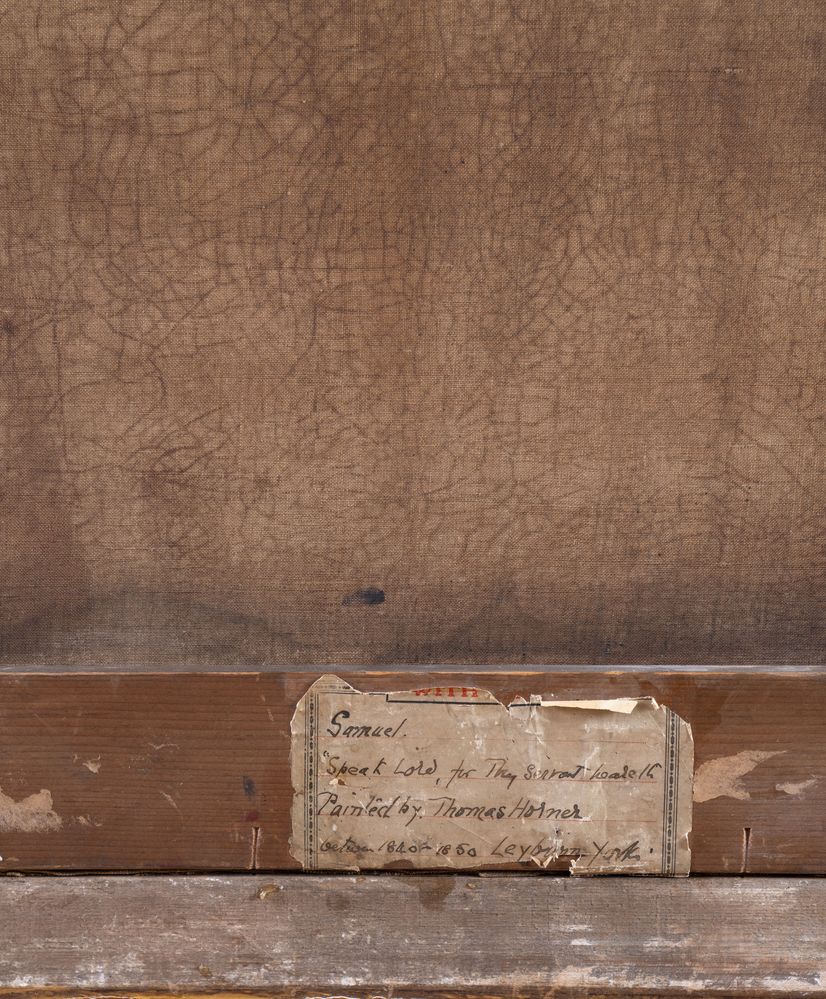 WITH
Samuel.
"Speak Lord, for Thy Servant heareth
Painted by Thomas Horner
between 1840-1850 Leyburn Yorks.